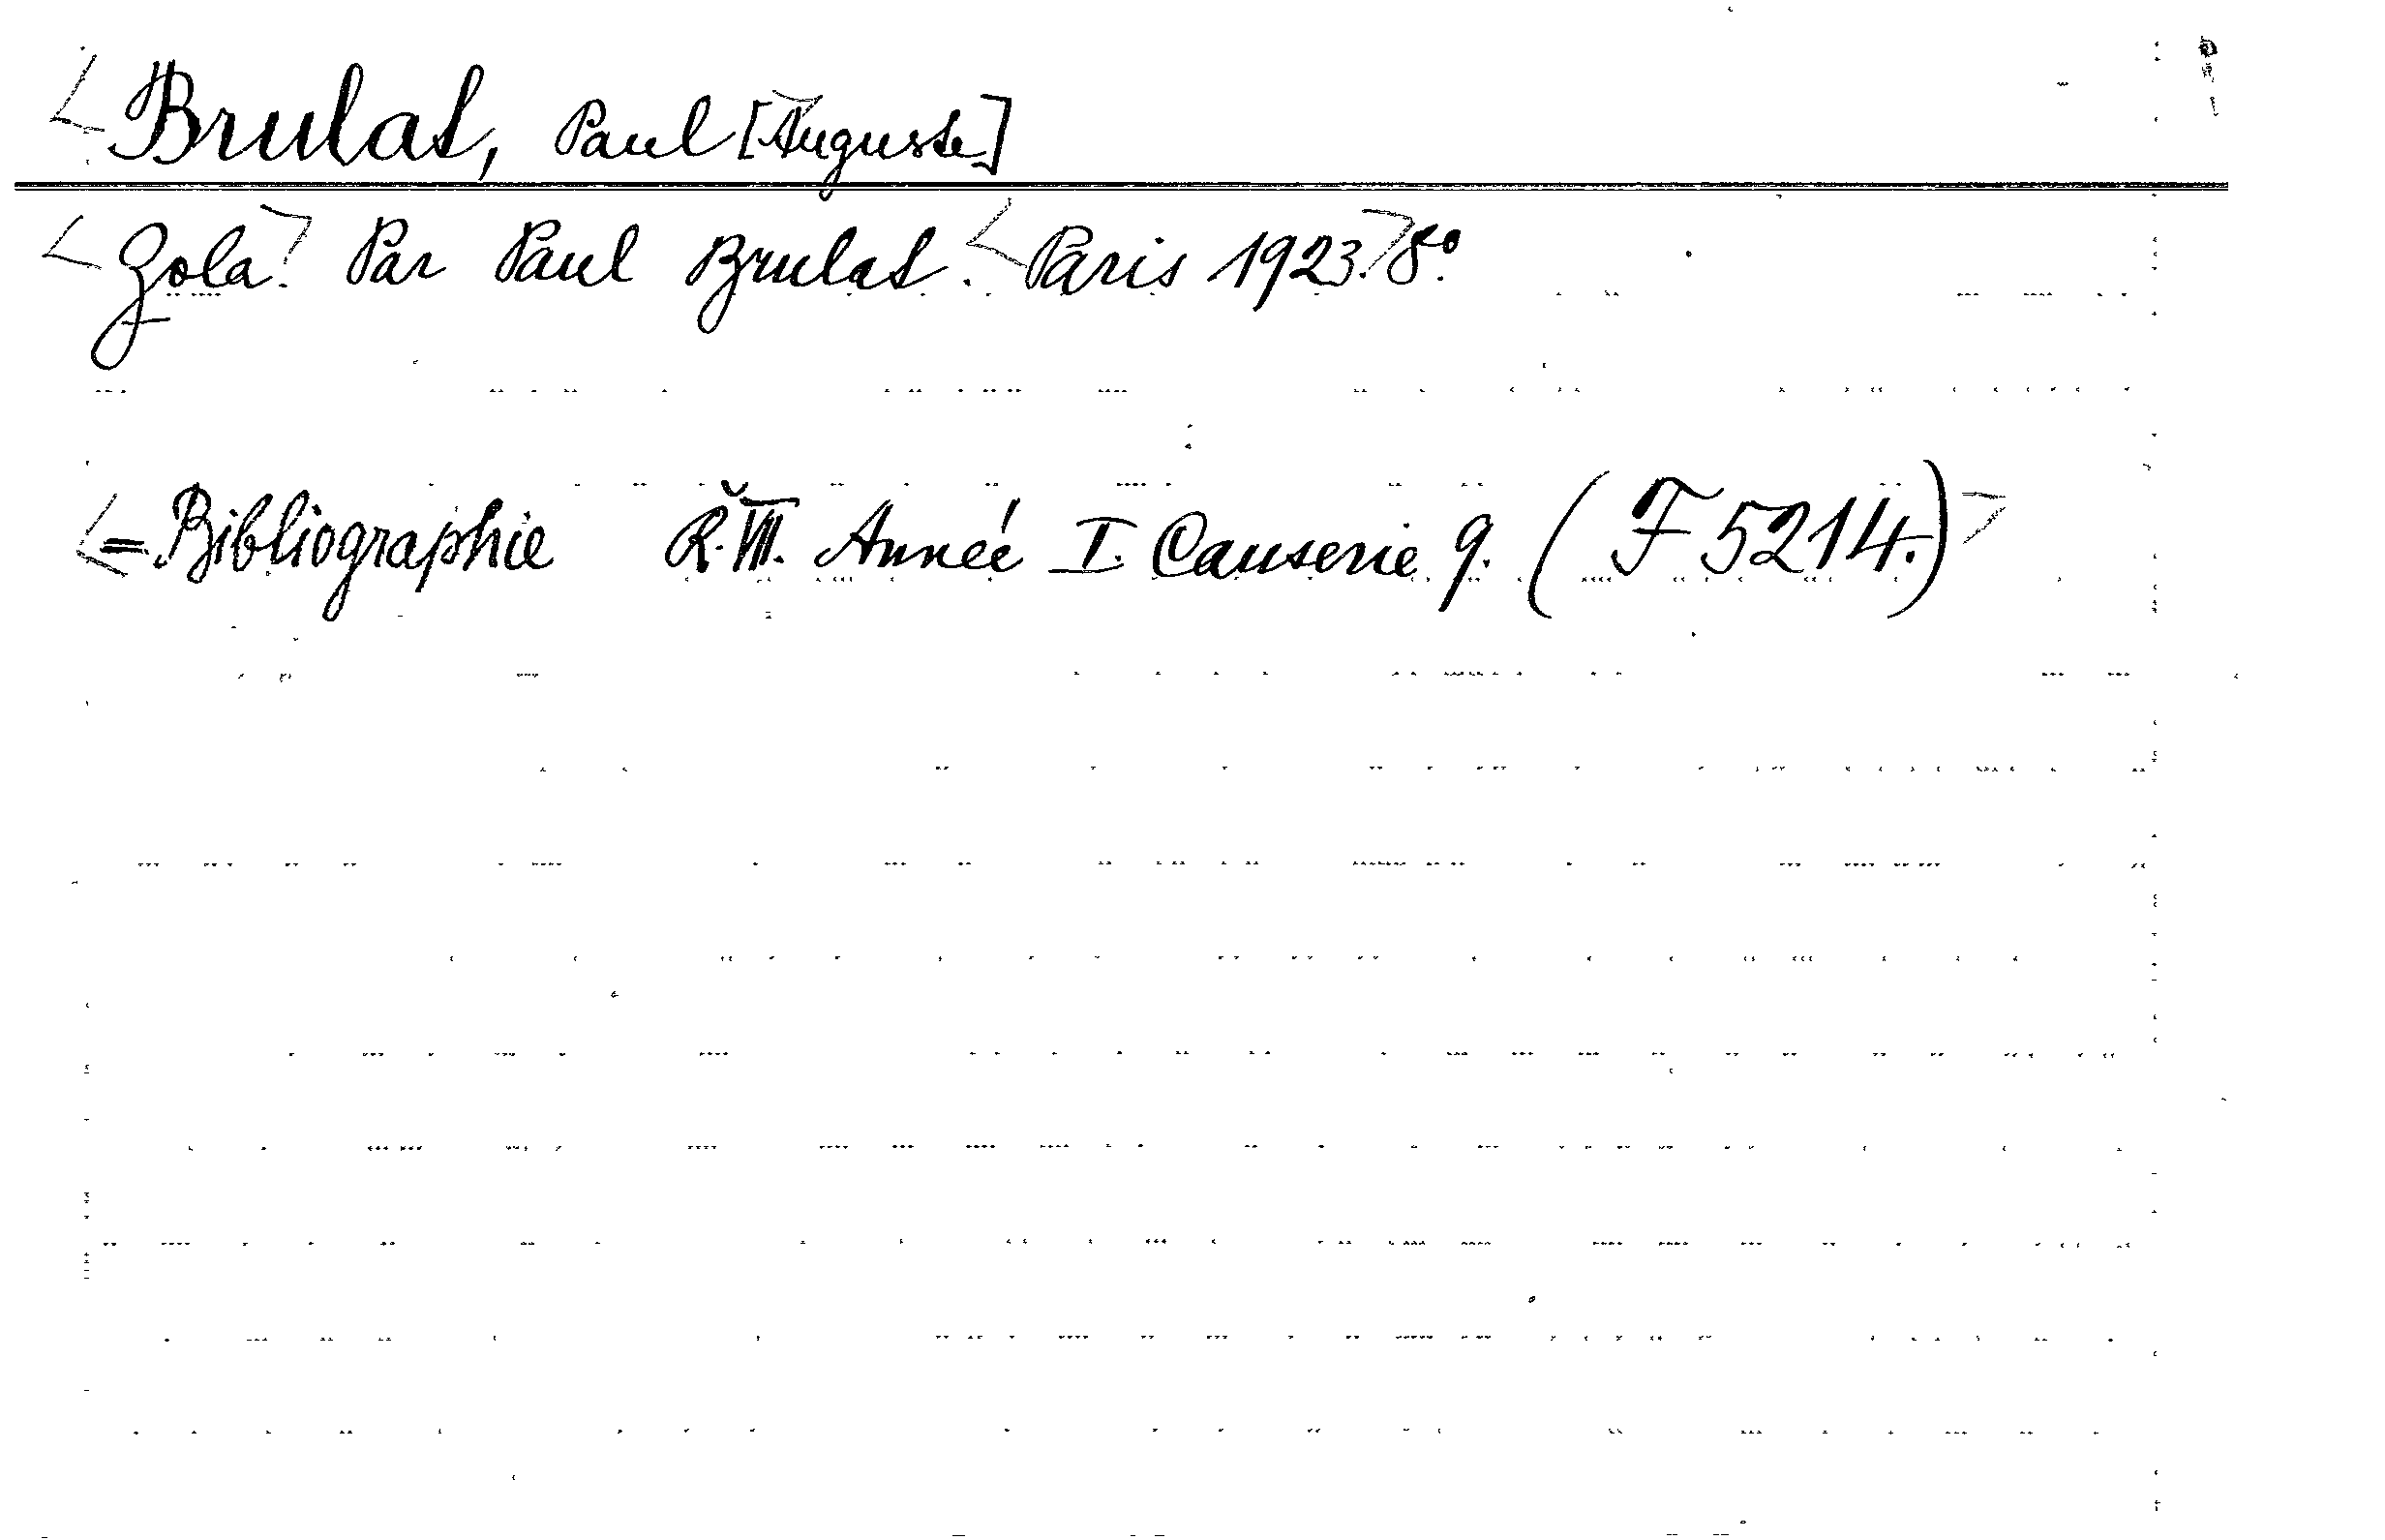 <Brulat, Paul [Auguste]
<Zola.> Par Paul Brulat. <Paris 1923.> 8º.
<= Bibliographie R. VII. Année I. Causerie 9. (F 5214.)>